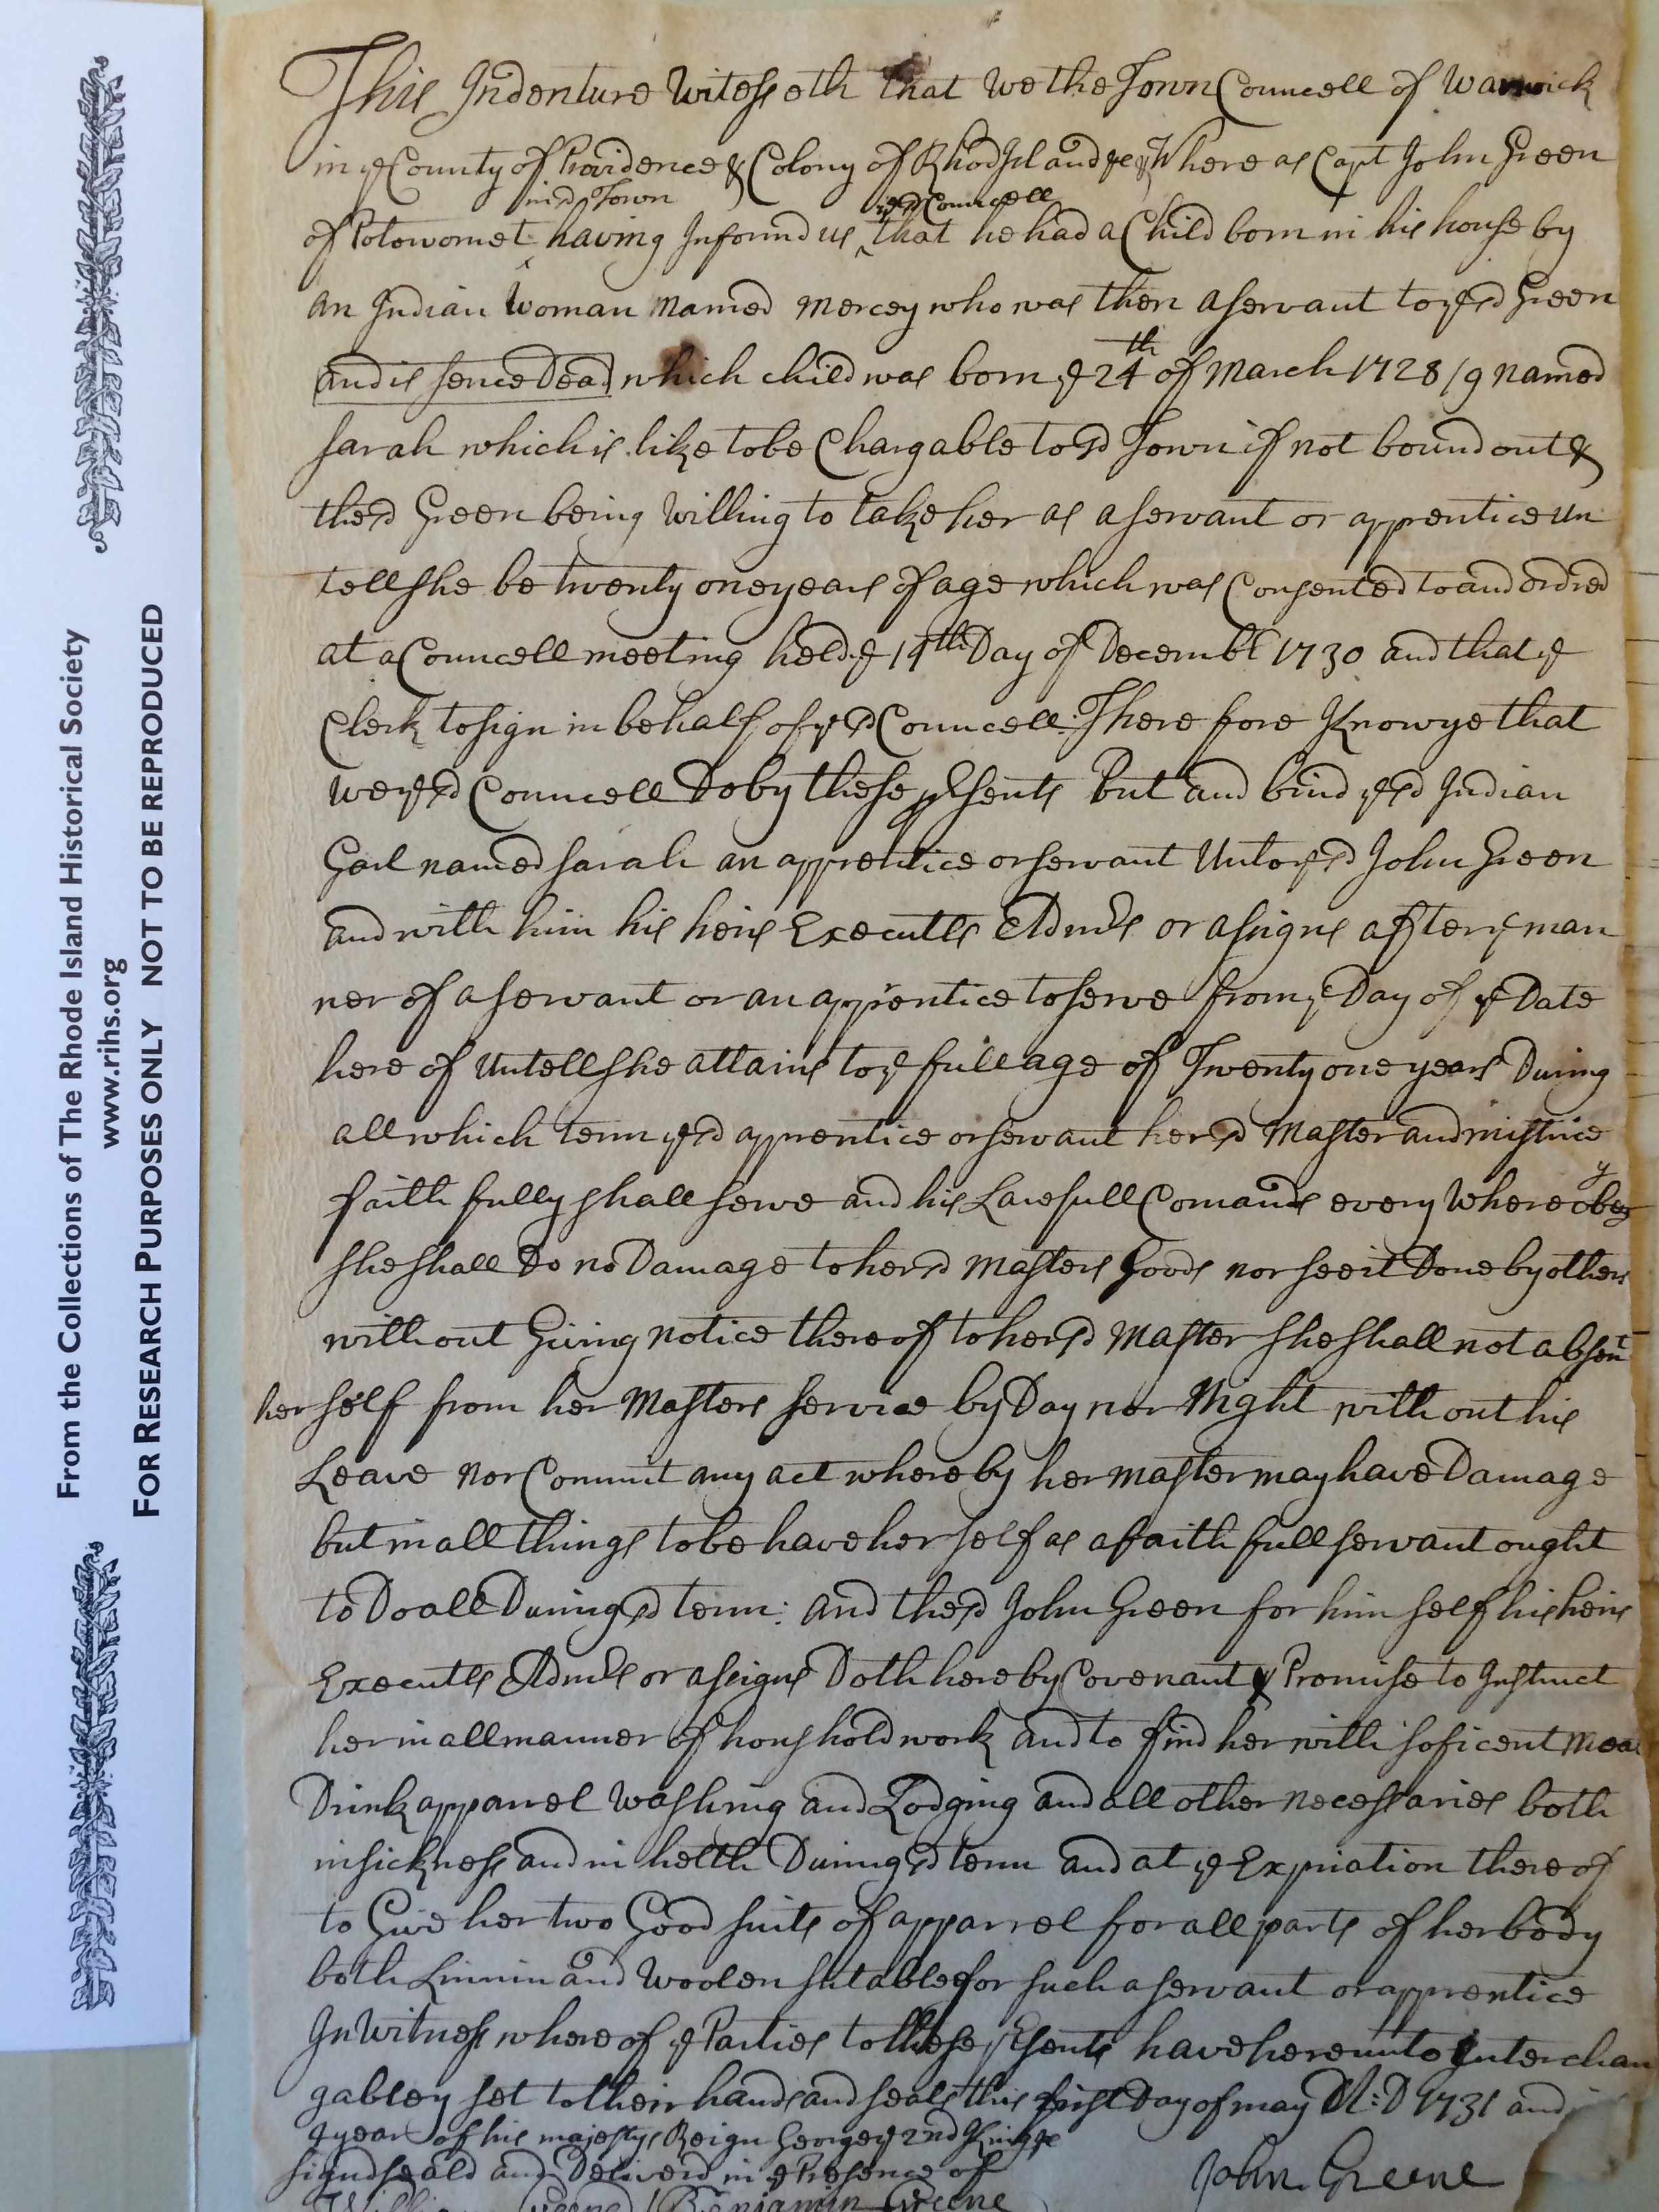 From the Collections of The Rhode Island Historical Society
www.rihs.org
FOR RESEARCH PURPOSES ONLY NOT TO BE REPRODUCED
This Indenture Witesseth that We the Town Councell of Warwick
in ye County of Providence & Colony of Rhod Island &c Where as Capt John Green
in sd Town ye sd Councell
of Potowomet having Informd us that he had a Child born in his house by
an Indian Woman Named Mercey who was then a servant to ye sd Green
and is sence Dead which child was born ye 24th of March 1728/9 named
sarah which is like to be Chargable to sd Town if not bound out &
the sd Green being Willing to take her as a servant or apprentice un
tell she be twenty one years of age which was Consented to and ordred
at a Councell meeting held ye 14th Day of Decembr 1730 and that ye
Clerk to sign in behalf of ye sd Councell: There fore Know ye that
we ye sd Councell Do by these psents Put and bind ye sd Indian
Garl named sarah an apprentice or servant Unto ye sd John Green
and with him his heirs Executrs Admrs or asigns after ye man
ner of a servant or an apprentice to serve from ye Day of ye Date
here of Untell she attains to ye full age of Twenty one years During
all which term ye sd apprentice or servant her sd Master and mistrice
faith fully shall serve and his Lawfull Comands every Where obey
she shall Do no Damage to her sd Masters Goods nor see it Done by others
without Giving notice there of to her sd Master she shall not absent
her self from her Masters service by Day nor Night with out his
Leave nor Commit any act where by her master may have Damage
but in all things to be have her self as a faith full servant ought
to Do all During sd term: and the sd John Green for him self his heirs
Executrs Admrs or asigns Doth here by Covenant & Promise to Instruct
her in all manner of houshold work and to find her with soficent Mea
Drink apparrel Washing and Lodging and all other necessaries both
in sickness and in helth During sd term and at ye Expriation there of
to Give her two Good suits of apparrel for all parts of her body
both Linnin and Woolen sutable for such a servant or apprentice
In Witness where of ye Parties to these psents have here unto Interchan
gabley set to their hands and seals this first Day of may A:D 1731 and
year of his majestys Reign George ye 2nd King &c
signd seald and Deliverd in ye Presence of
John Greene
Benjamin Greene